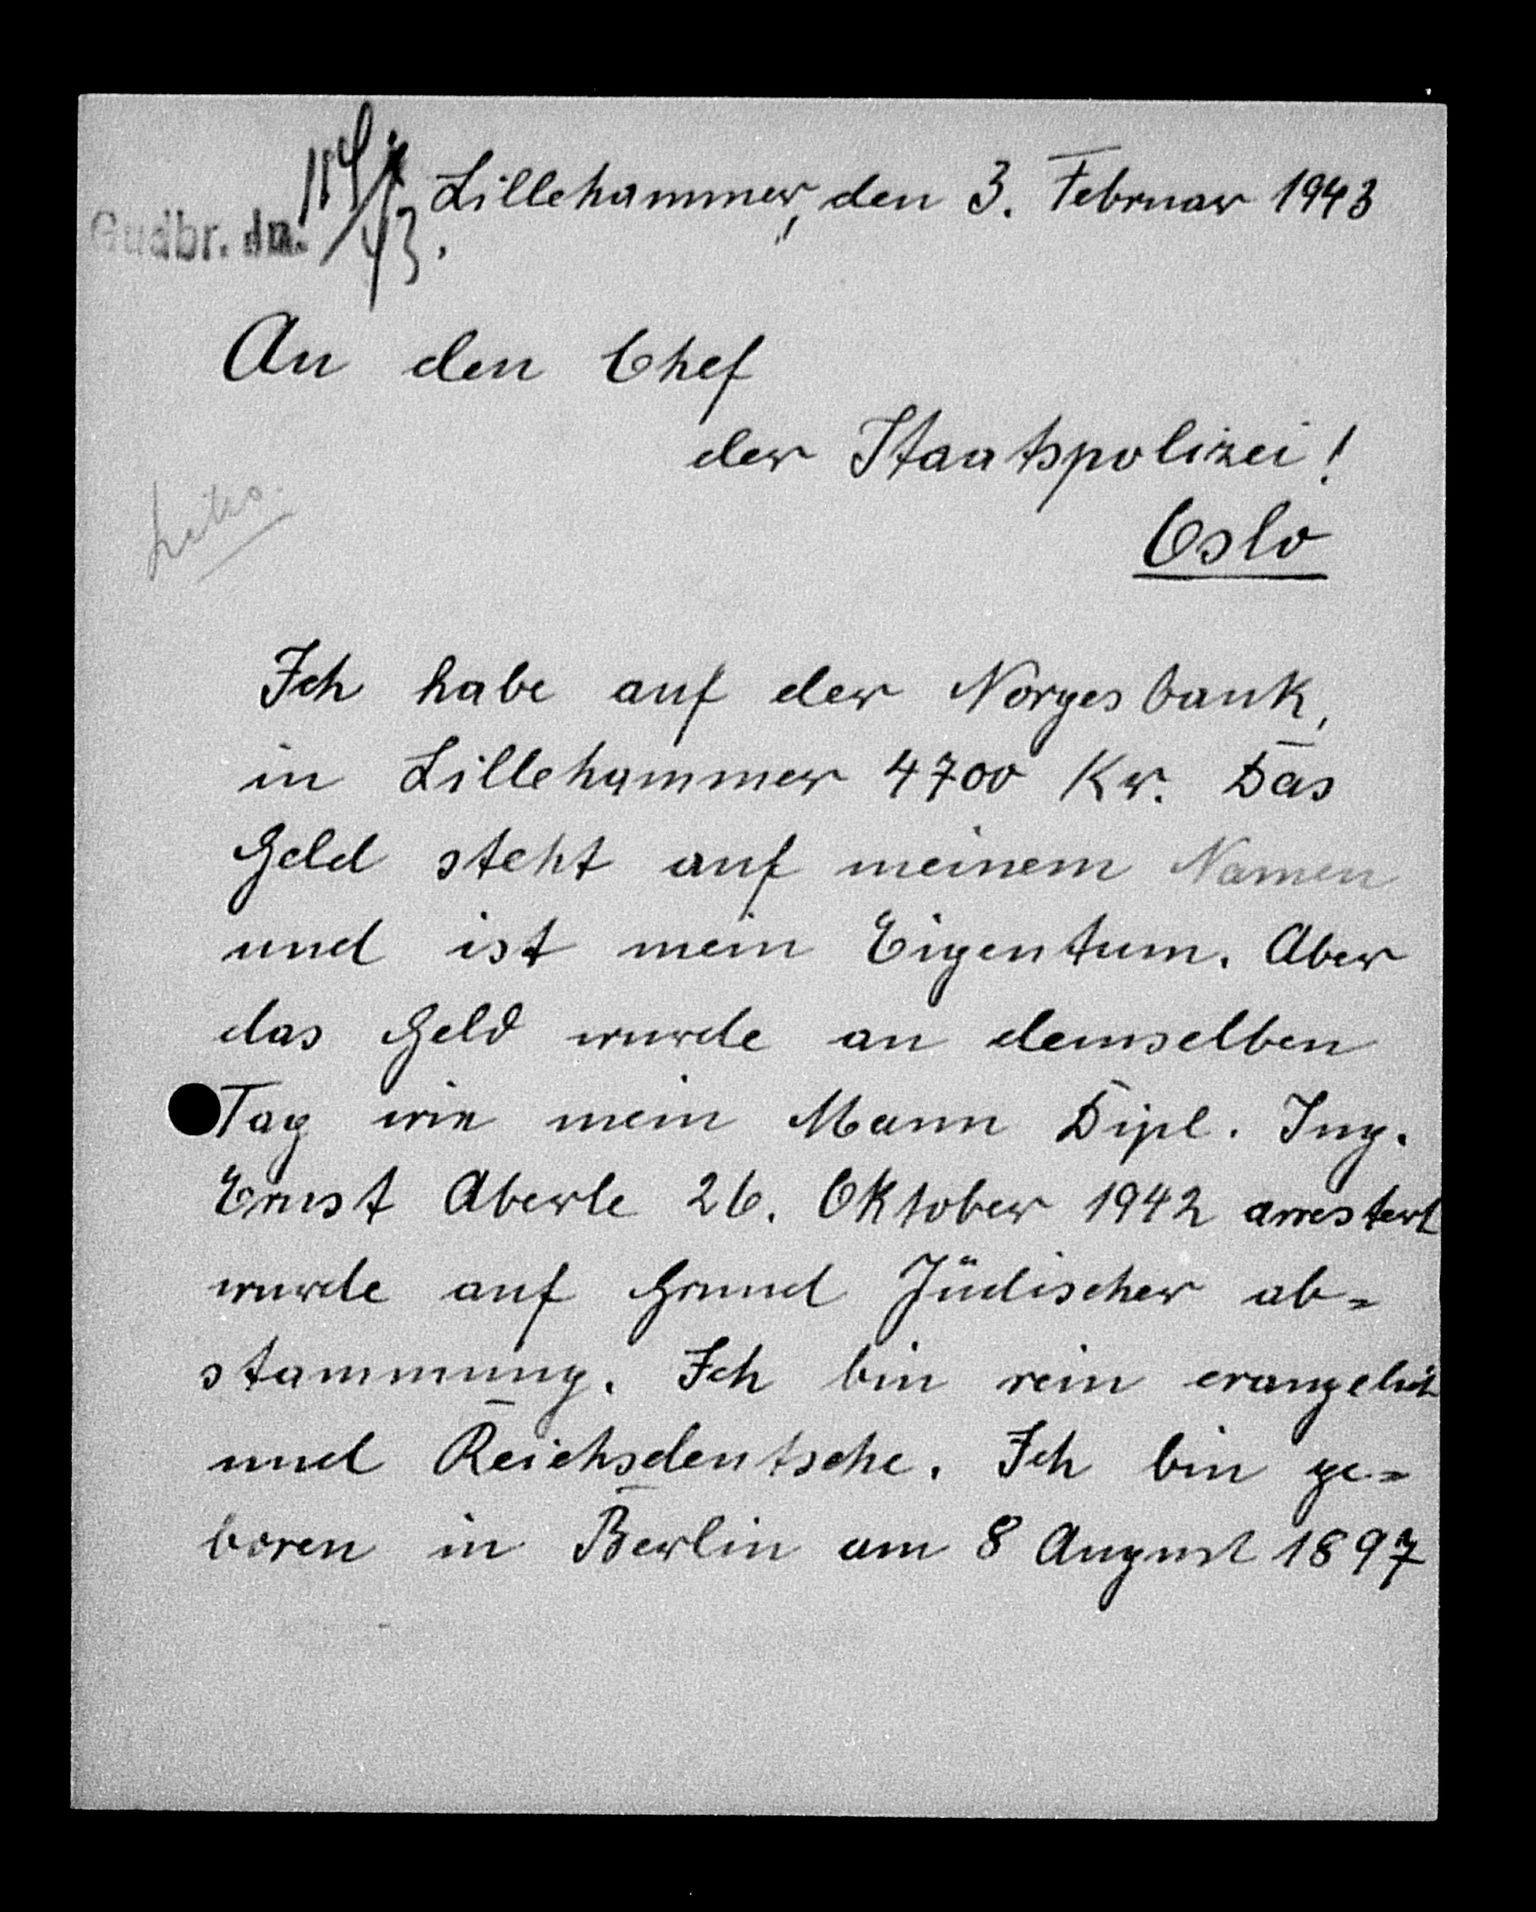 Lillehammer, den 3. Februar 1943
Gudbr. dn. 114/43.
An den Chef
der Staatspolizei!
Oslo
Ich habe auf der Norges bank,
in Lillehammer 4700 Kr. Das
Geld steht auf meinem Namen
und ist mein Eigentum. Aber
das Geld wurde an demselben
Tag wie mein Mann Dipl. Ing.
Ernst Aberle 26. Oktober 1942 arrestert
wurde auf Grund Jüdischer ab=
stammung. Ich bin rein evangelisch
und Reichsdeutsche. Ich bin ge=
boren in Berlin am 8 August 1897